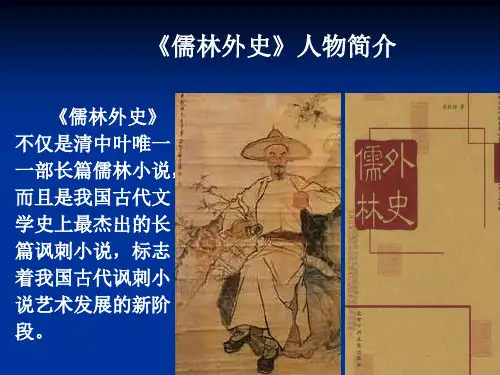 《儒林外史》人物简介
《儒林外史》
不仅是清中叶唯一
一部长篇儒林小说,
而且是我国古代文
学史上最杰出的长
篇讽刺小说，标志
着我国古代讽刺小
说艺术发展的新阶
段。
儒林
外史